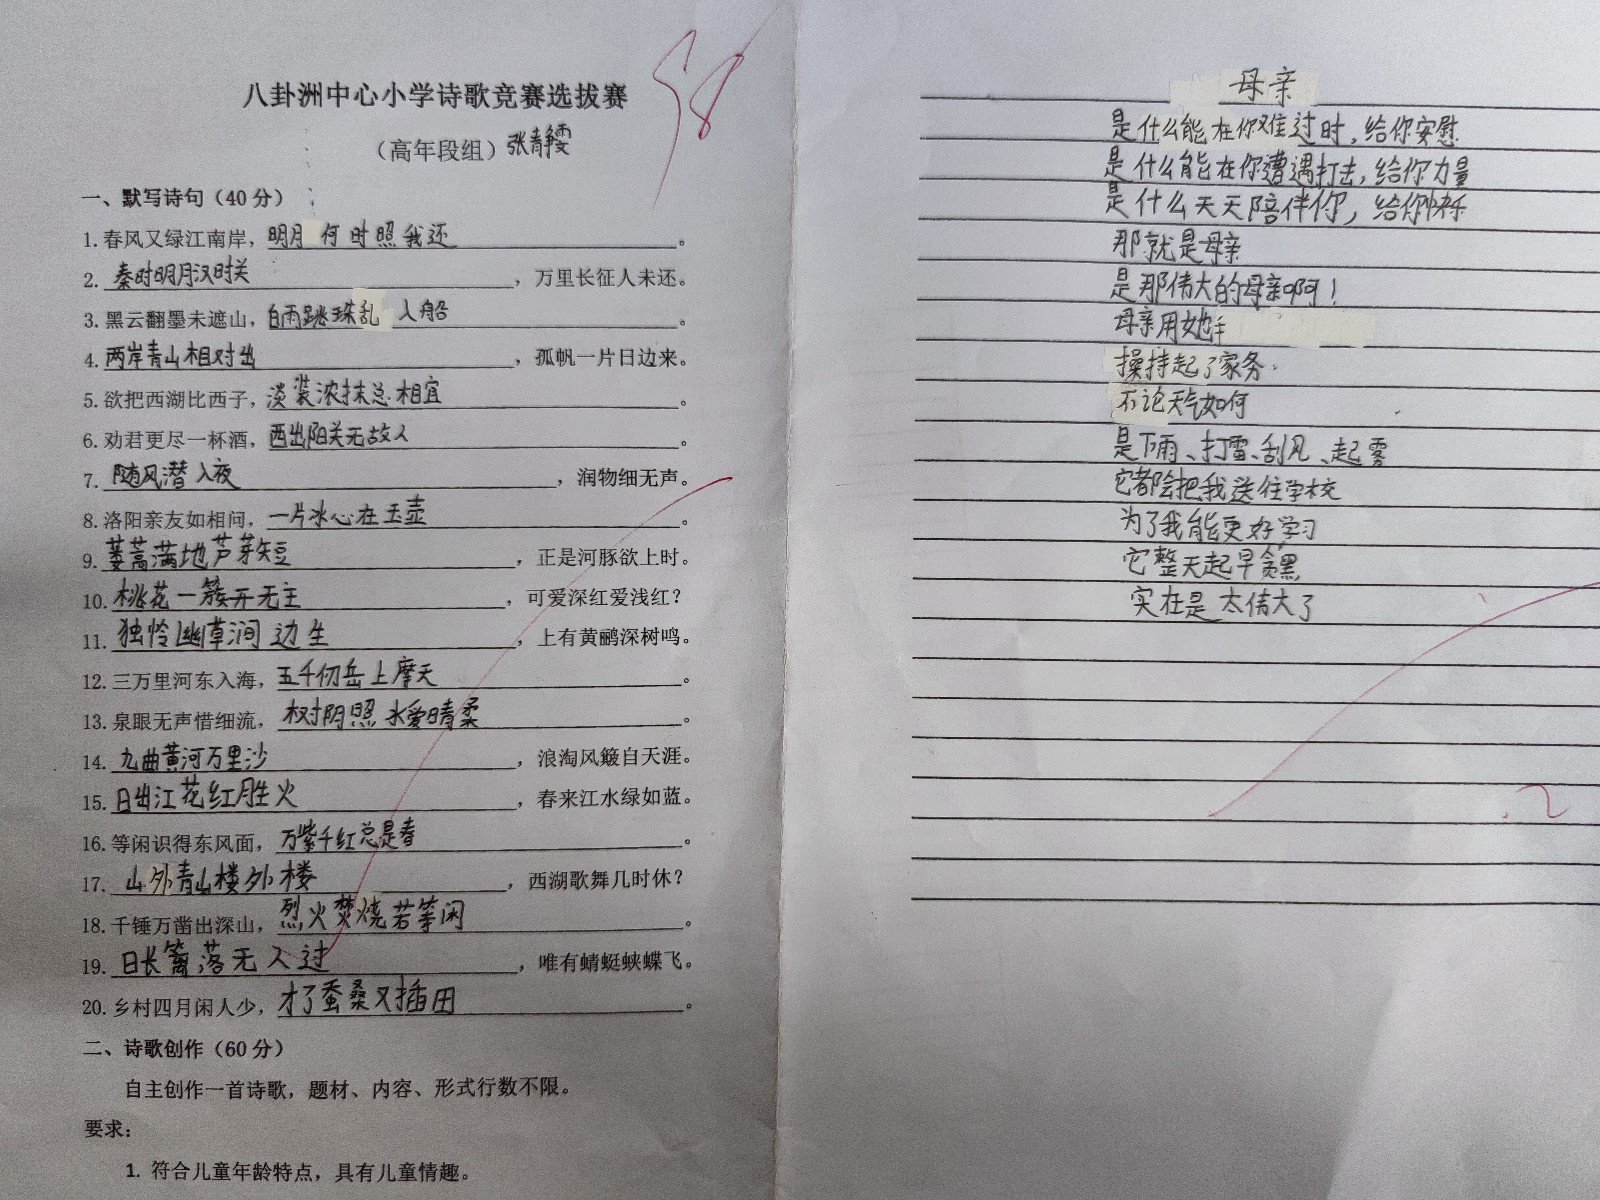 58
八卦洲中心小学诗歌竞赛选拔赛
（高年段组）张静雯
一、默写诗句（40分）
1.春风又绿江南岸，明月何时照我还。
2.秦时明月汉时关，万里长征人未还。
3.黑云翻墨未遮山，白雨跳珠乱入船。
4.两岸青山相对出，孤帆一片日边来。
5.欲把西湖比西子，淡装浓抹总相宜。
6.劝君更尽一杯酒，西出阳关无故人。
7.随风潜入夜，润物细无声。
8.洛阳亲友如相问，一片冰心在玉壶。
9.蒌蒿满地芦芽短，正是河豚欲上时。
10.桃花一簇开无主，可爱深红爱浅红？
11.独怜幽草涧边生，上有黄鹂深树鸣。
12.三万里河东入海，五千仞岳上摩天。
13.泉眼无声惜细流，树阴照水爱晴柔。
14.九曲黄河万里沙，浪淘风簸自天涯。
15.日出江花红胜火，春来江水绿如蓝。
16.等闲识得东风面，万紫千红总是春。
17.山外青山楼外楼，西湖歌舞几时休？
18.千锤万凿出深山，烈火焚烧若等闲。
19.日长篱落无人过，唯有蜻蜓蛱蝶飞。
20.乡村四月闲人少，才了蚕桑又插田。
二、诗歌创作（60分）
自主创作一首诗歌，题材、内容、形式行数不限。
要求：
1. 符合儿童年龄特点，具有儿童情趣。
母亲
是什么能在你难过时，给你安慰
是什么能在你遭遇打击，给你力量
是什么天天陪伴你，给你快乐
那就是母亲
是那伟大的母亲啊！
母亲用她
操持起了家务.
不论天气如何
是下雨、打雷、刮风、起雾
它都会把我送往学校
为了我能更好学习
它整天起早贪黑
实在是太伟大了